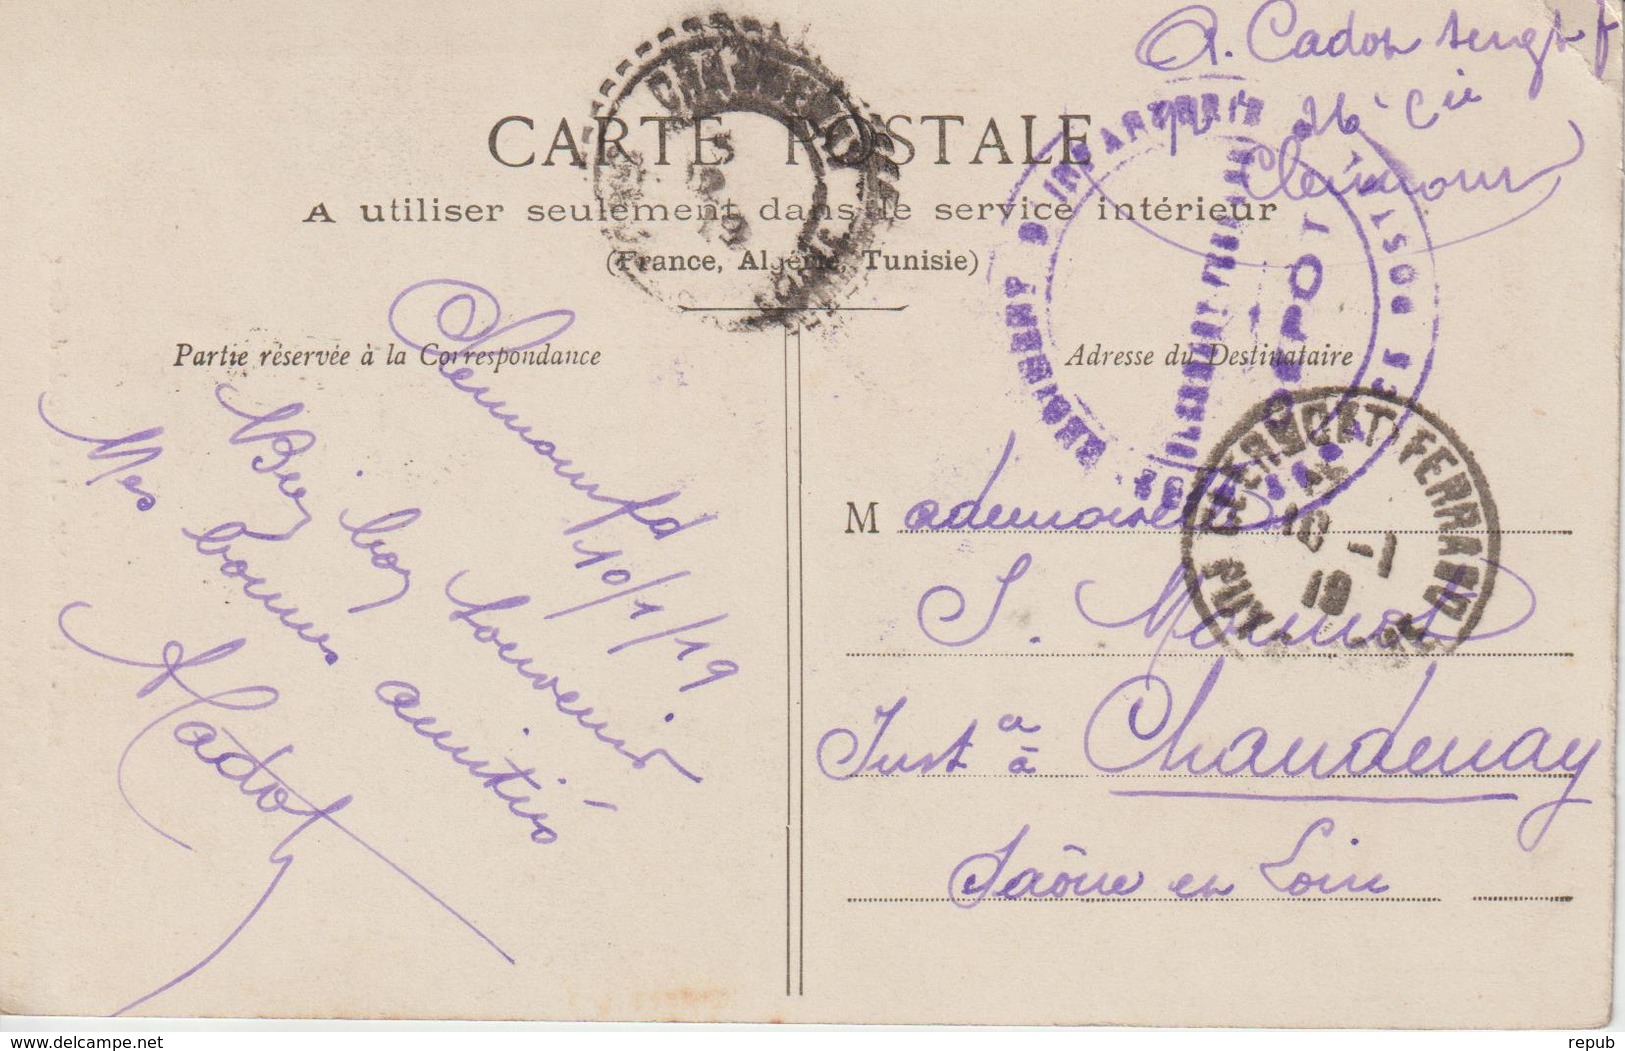 A. Cadot
26e Cie
Clermont
CARTE POSTALE
A utiliser seulement dans le service intérieur
(France, Algérie, Tunisie)
Partie réservée à la Correspondance
Adresse du Destinataire
DEPOT
CLERMONT FERRAND
10 -1
19
PUY-DE-
Clermont fd
10/1/19
Bien bon souvenir
Mes bonnes amitiés
ACadot
Mademoiselle
J.
Instª à Chaudenay
Saône en Loire
delcampe.net
repub